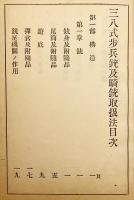 三八式歩兵銃及騎銃取扱法目次
第一部 構造 一頁
第一章 銃 一
銃身及附随品 一
尾筒及附随品 五
遊底 九
弾倉及附随品 一七
銃尾機関ノ作用 一九